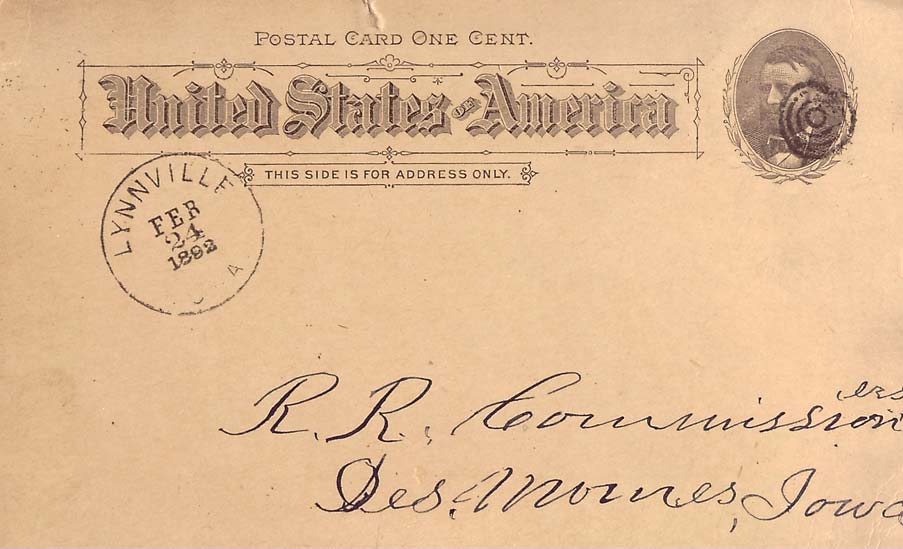 POSTAL CARD ONE CENT.
United States of America
THIS SIDE IS FOR ADDRESS ONLY.
LYNNVILLE
FEB
24
1892
A
R. R. Commissioners
Des. Moines, Iowa